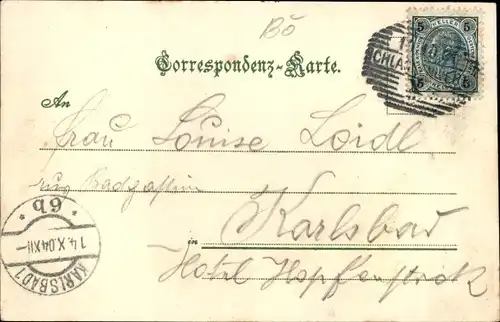 Bö
5 HELLER 5
5 5
Correspondenz-Karte.
An
Frau Louise Loidl
Karlsbad
in
Hotel Hopfenstock
* 6b *
14.X.04 XII-
KARLSBAD 1